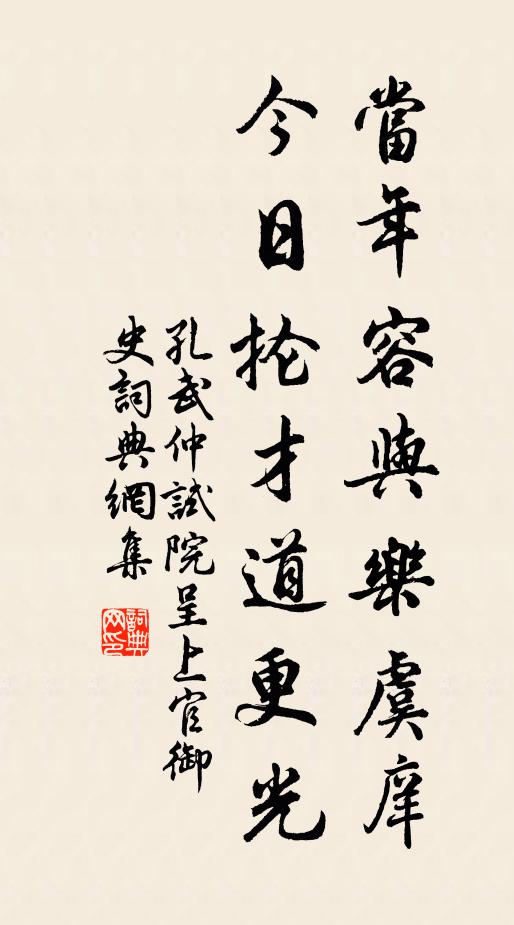 當年容與樂虞庠
今日抡才道更光
孔武仲試院呈上官御
史詞典網集
詞典網印